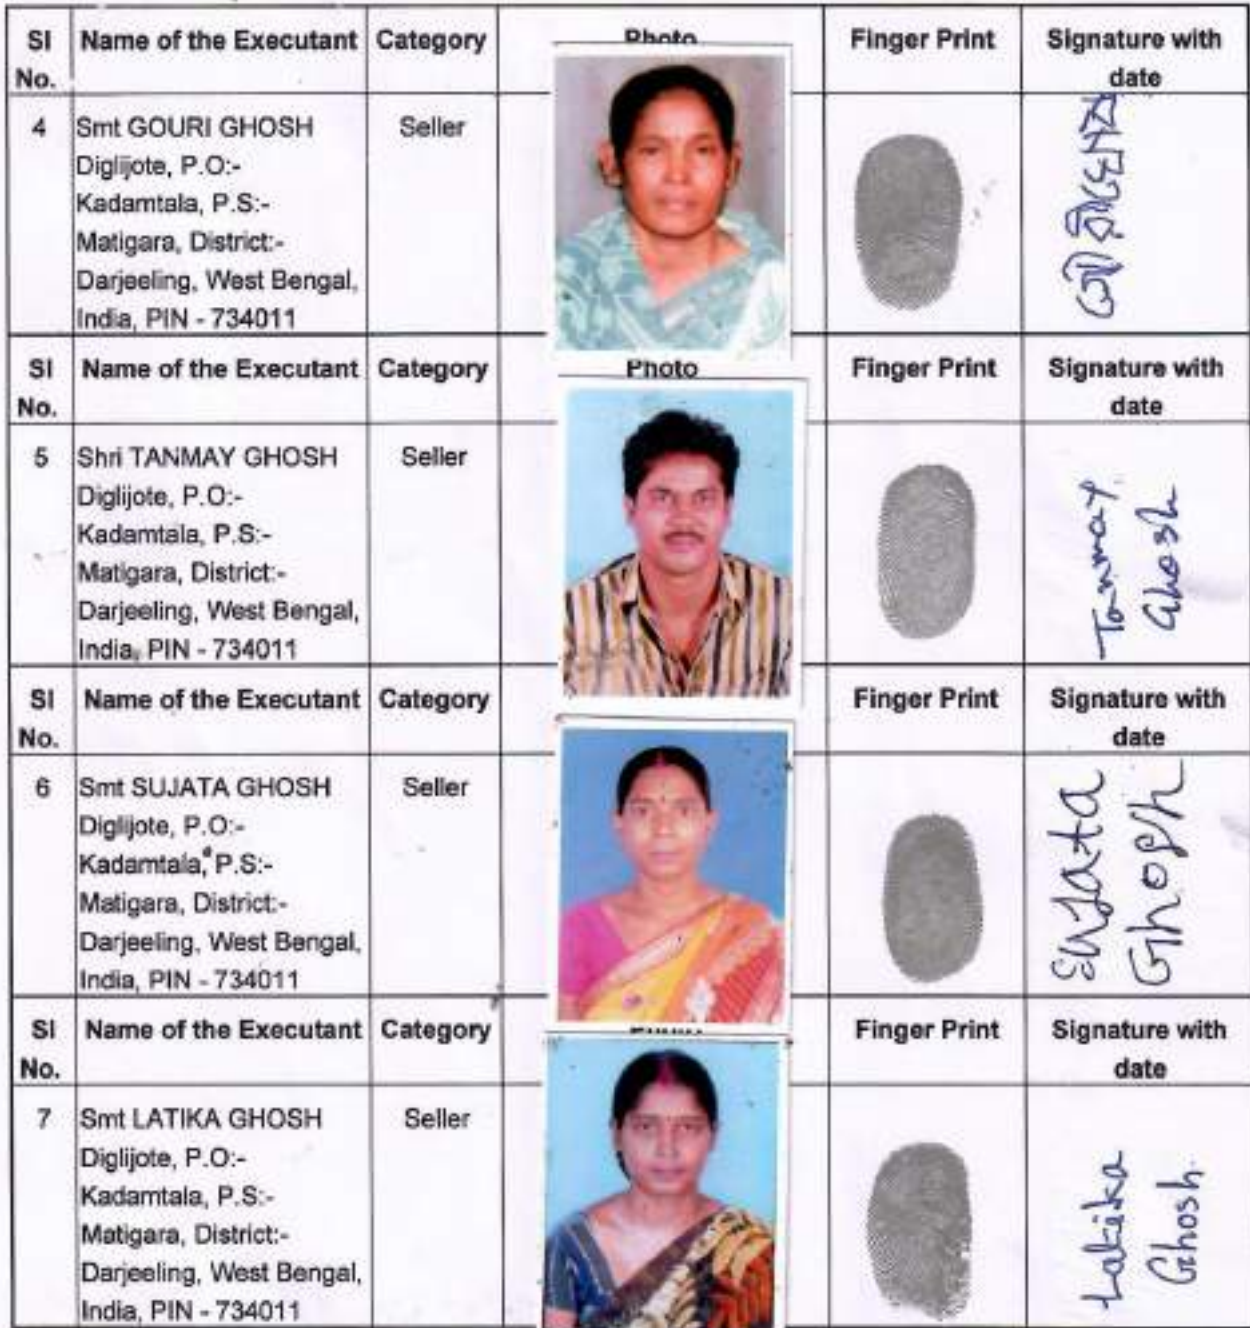 Sl No. Name of the Executant Category Photo Finger Print Signature with date
4 Smt GOURI GHOSH Seller
Diglijote, P.O:-
Kadamtala, P.S:-
Matigara, District:-
Darjeeling, West Bengal,
India, PIN - 734011
Sl No. Name of the Executant Category Photo Finger Print Signature with date
5 Shri TANMAY GHOSH Seller
Diglijote, P.O:-
Kadamtala, P.S:-
Matigara, District:-
Darjeeling, West Bengal,
India, PIN - 734011
Tanmay
Ghosh
Sl No. Name of the Executant Category Finger Print Signature with date
6 Smt SUJATA GHOSH Seller
Diglijote, P.O:-
Kadamtala, P.S:-
Matigara, District:-
Darjeeling, West Bengal,
India, PIN - 734011
Sujata
Ghosh
Sl No. Name of the Executant Category Finger Print Signature with date
7 Smt LATIKA GHOSH Seller
Diglijote, P.O:-
Kadamtala, P.S:-
Matigara, District:-
Darjeeling, West Bengal,
India, PIN - 734011
Latika
Ghosh.